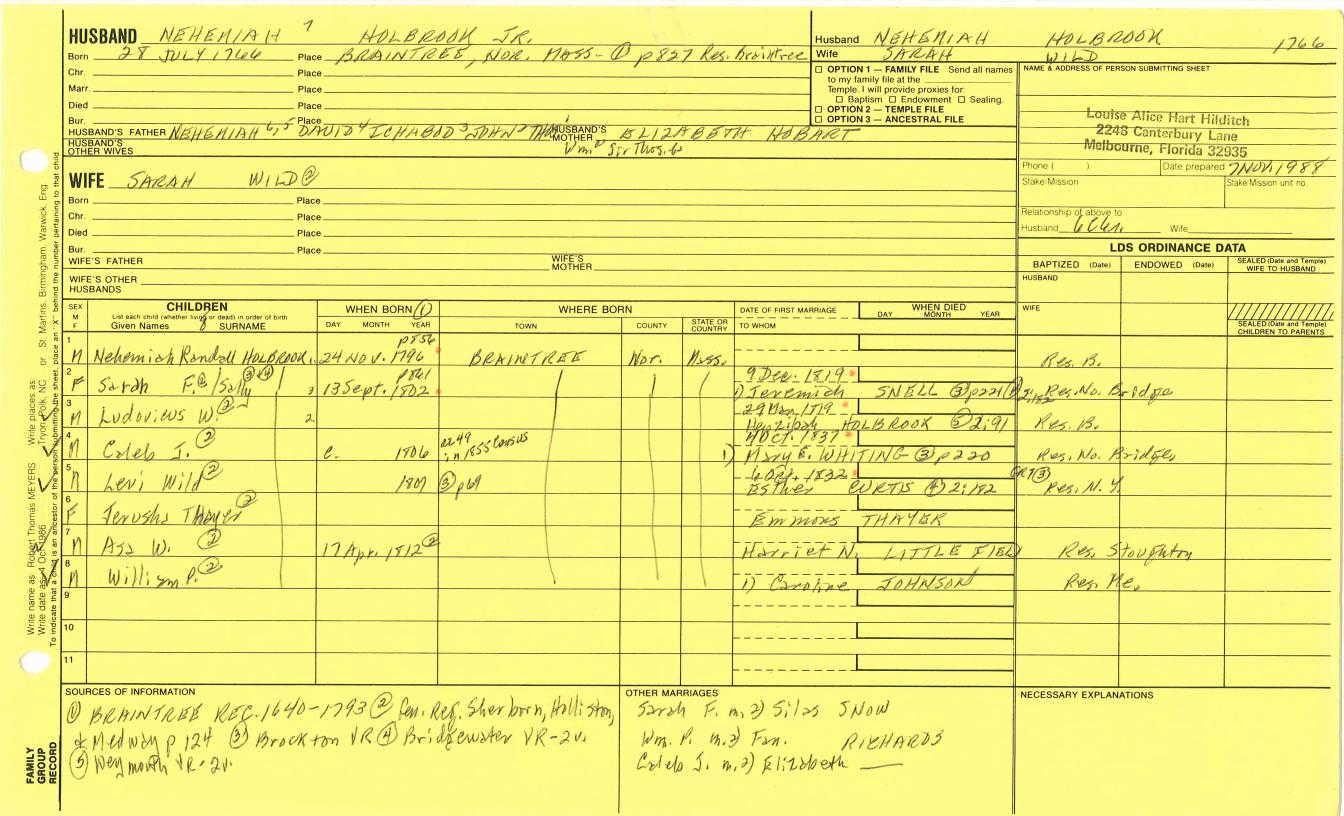 HUSBAND NEHEMIAH 7 HOLBROOK JR.
Born 28 JULY 1766 Place BRAINTREE, NOR. MASS- ① p827 Res. Braintree
Chr. Place
Marr. Place
Died Place
Bur. Place
HUSBAND'S FATHER NEHEMIAH 6,5 DAVID 4 ICHABOD 3 JOHN 2 HUSBAND'S MOTHER ELIZABETH HOBART
HUSBAND'S OTHER WIVES
Husband NEHEMIAH HOLBROOK 1766
Wife SARAH WILD
☐ OPTION 1 — FAMILY FILE Send all names
to my family file at the
Temple. I will provide proxies for:
☐ Baptism ☐ Endowment ☐ Sealing.
☐ OPTION 2 — TEMPLE FILE
☐ OPTION 3 — ANCESTRAL FILE
NAME & ADDRESS OF PERSON SUBMITTING SHEET
Louise Alice Hart Hilditch
2248 Canterbury Lane
Melbourne, Florida 32935
Phone ( ) Date prepared 7 Nov. 1988
Stake/Mission Stake/Mission unit no.
Relationship of above to
Husband 6C6r. Wife
WIFE SARAH WILD ②
Born Place
Chr. Place
Died Place
Bur. Place
WIFE'S FATHER WIFE'S MOTHER
WIFE'S OTHER HUSBANDS
LDS ORDINANCE DATA
BAPTIZED (Date) ENDOWED (Date) SEALED (Date and Temple) WIFE TO HUSBAND
HUSBAND
WIFE
SEALED (Date and Temple) CHILDREN TO PARENTS
SEX M F
CHILDREN
List each child (whether living or dead) in order of birth
Given Names 8 SURNAME
WHEN BORN ①
DAY MONTH YEAR
WHERE BORN
TOWN COUNTY STATE OR COUNTRY
DATE OF FIRST MARRIAGE
TO WHOM
WHEN DIED
DAY MONTH YEAR
1 p856
M Nehemiah Randall HOLBROOK 24 NOV. 1796 BRAINTREE Nor. Mass. Res. B.
2 p861 9 Dec. 1819
F Sarah F. ② /Sally ③④ 3 13 Sept. 1802 1) Jeremiah SNELL ③ p221 Res. No. Bridge
3 29 1819
M Ludovicus W. ② 2 Hepzibah HOLBROOK ⑤ 2:91 Res. B.
4 ae 49 in 1855 Census Oct. 1837
M Caleb J. ② c. 1806 1) Mary E. WHITING ③ p220 Res. No. Bridge.
5 6 Oct. 1832
M Levi Wild ② 1809 ③ p69 Esther CURTIS ④ 2:182 CRT ③ Res. N.Y.
6
F Jerusha Thayer ② Emmons THAYER
7
M Asa W. ② 17 Apr. 1812 ② Harriet N. LITTLEFIELD Res. Stoughton
8
M William P. ② 1) Caroline JOHNSON Res. Me.
9
10
11
SOURCES OF INFORMATION
① BRAINTREE REC. 1640-1793 ② Gen. Reg. Sherborn, Holliston,
& Medway p 124 ③ Brockton VR ④ Bridgewater VR-2v.
⑤ Weymouth VR-2v.
OTHER MARRIAGES
Sarah F. m. 2) Silas SNOW
Wm. P. m. 2) Fan. RICHARDS
Caleb J. m. 2) Elizabeth ——
NECESSARY EXPLANATIONS
FAMILY GROUP RECORD
Write name as Robert Thomas MEYERS Write places as Tryon, Polk, NC or St. Martins, Birmingham, Warwick, Eng.
Write date as 4 Oct 1986
To indicate that a child is an ancestor of the person submitting the sheet, place an "X" behind the number pertaining to that child.